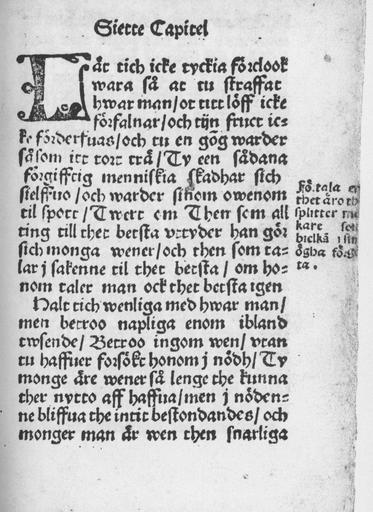 Siette Capitel
Låt tich icke tyckia förclook
wara så at tu straffat
hwar man/ ot titt löff icke
förfalnar/ och tijn fruct ic-
ke förderfuas/ och tu en gög warder
såsom itt tort trä/ Ty een sådana
förgifftig menniskia skadhar sich
sielffuo/ och warder sinom owenom
til spott/ Twert om Then som all
ting till thet betsta vttyder han gör
sich monga wener/ och then som ta-
lar j sakenne til thet betsta/ om ho-
nom taler man ock thet betsta igen
Halt tich wenliga med hwar man/
men betroo napliga enom ibland
twsende/ Betroo ingom wen/ vtan
tu haffuer forsökt honom j nödh/ Ty
monge äre wener så lenge the kunna
ther nytto aff haffua/ men j nöden-
ne bliffua the intit bestondandes/ och
monger man är wen then snarliga
Fö. tala
thet äro
splitter
kare
hielka i
ögha
ta.